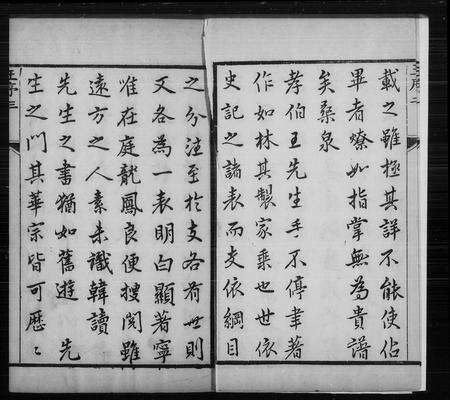 王序二
載之雖極其詳不能使佔
畢者燎如指掌無為貴譜
矣桑泉
孝伯王先生手不停聿著
作如林其製家乘也世依
史記之諸表而支依綱目
之分注至於支各有世則
又各為一表明白顯著寧
唯在庭龍鳳良便搜閱雖
遠方之人素未識韓讀
先生之書猶如舊遊 先
生之門其華宗皆可歷〻
王序三